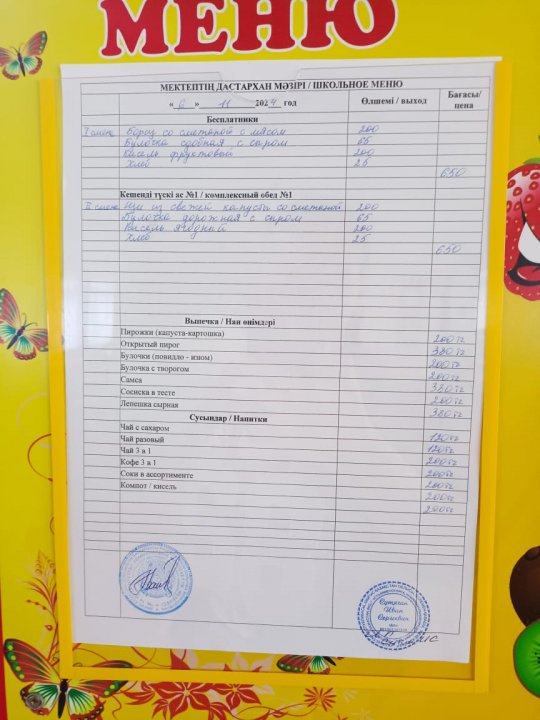 МЕНЮ
МЕКТЕПТІҢ ДАСТАРХАН МӘЗІРІ / ШКОЛЬНОЕ МЕНЮ
« 6 » 11 2024 год Өлшемі / выход Бағасы/ цена
Бесплатники
I смена Борщ со сметаной с мясом 200
Булочка сдобная с сыром 65
Кисель фруктовый 200
Хлеб 25
650
Кешенді түскі ас №1 / комплексный обед №1
II смена Щи из свежей капусты со сметаной 200
Булочка дорожная с сыром 65
Кисель ягодный 200
Хлеб 25
650
Выпечка / Нан өнімдері
Пирожки (капуста-картошка) 200 тг
Открытый пирог 380 тг
Булочки (повидло - изюм) 200 тг
Булочка с творогом 200 тг
Самса 380 тг
Сосиска в тесте 200 тг
Лепешка сырная 380 тг
Сусындар / Напитки
Чай с сахаром 120 тг
Чай разовый 120 тг
Чай 3 в 1 200 тг
Кофе 3 в 1 200 тг
Соки в ассортименте 200 тг
Компот / кисель 200 тг
200 тг
Иван
Сергеевич